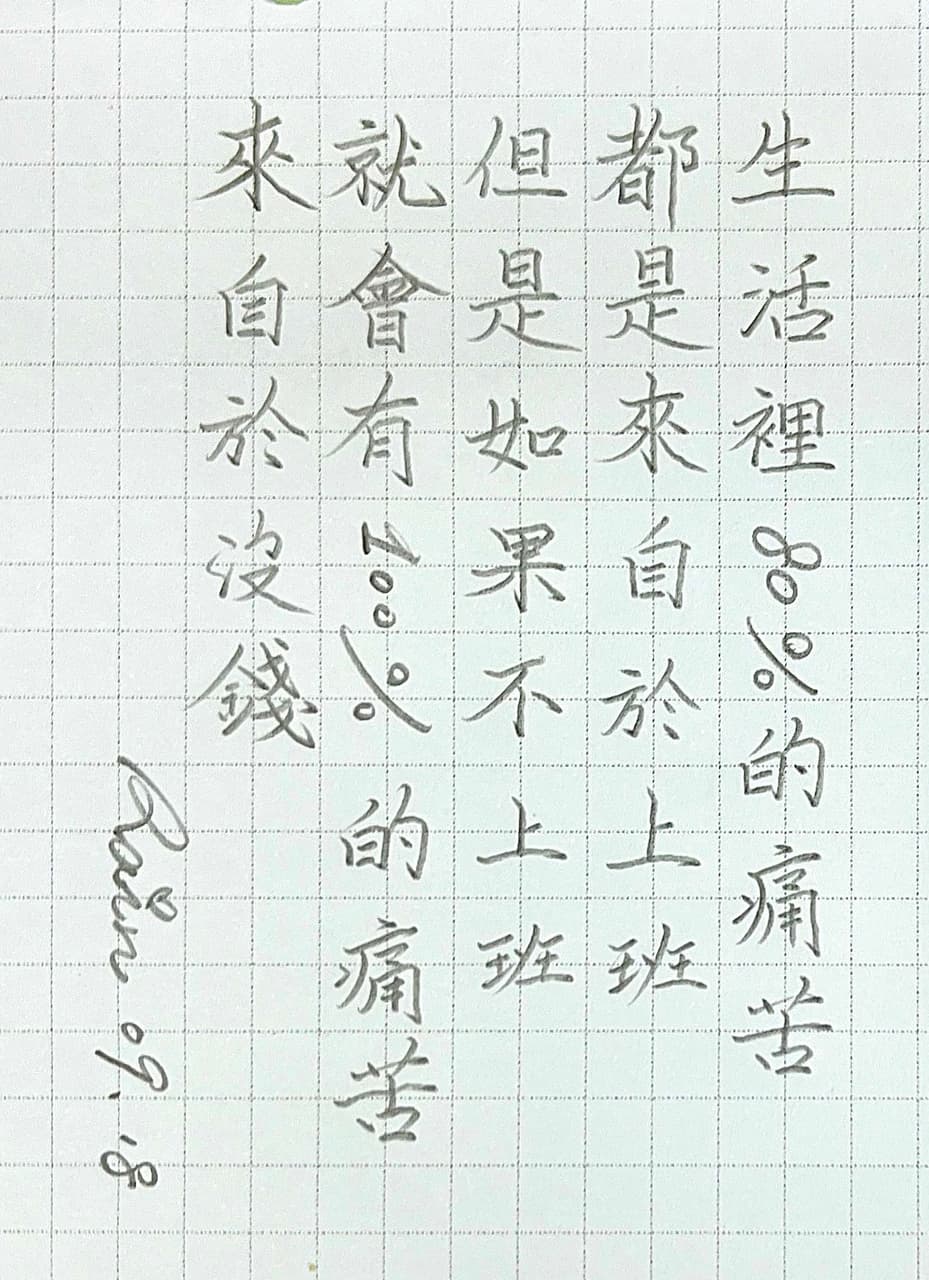 生活裡80%的痛苦
都是來自於上班
但是如果不上班
就會有100%的痛苦
來自於沒錢
Rain 09.18